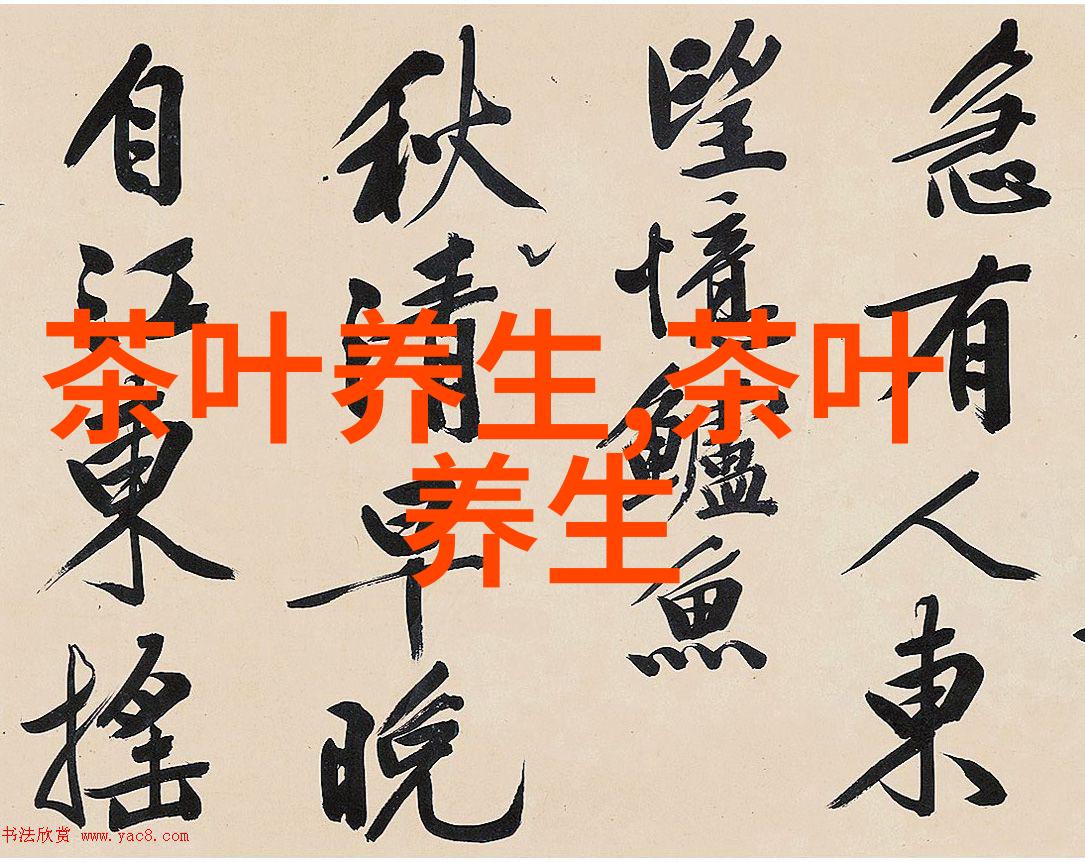 急有人東
望憶鱸魚
秋清早晚
自江東搖
茶叶养生,茶叶
养生
书法欣赏 www.yac8.com